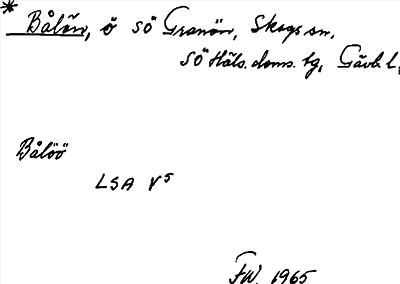 * Bålön, ö sö Granön, Skogs sn,
SÖ Häls. doms. tg, Gävb. l,
Bålöö
LSA V5
FW. 1965